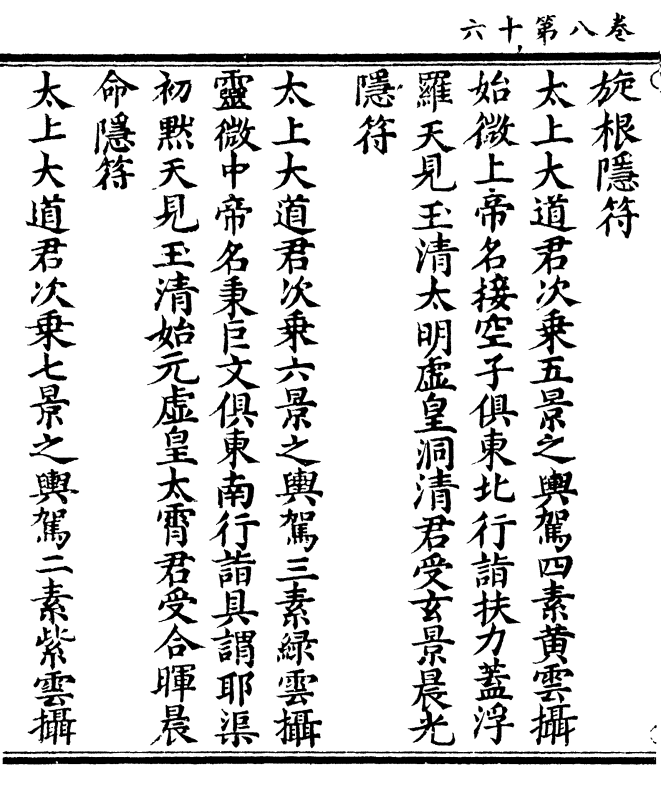 卷八第十六
旋根隱符
太上大道君次乗五景之輿駕四素黄雲攝
始微上帝名接空子俱東北行詣扶力蓋浮
羅天見玉清太明虚皇洞清君受玄景晨光
隱符
太上大道君次乗六景之輿駕三素綠雲攝
靈微中帝名秉巨文俱東南行詣具謂耶渠
初黙天見玉清始元虚皇太霄君受合暉晨
命隱符
太上大道君次乗七景之輿駕二素紫雲攝